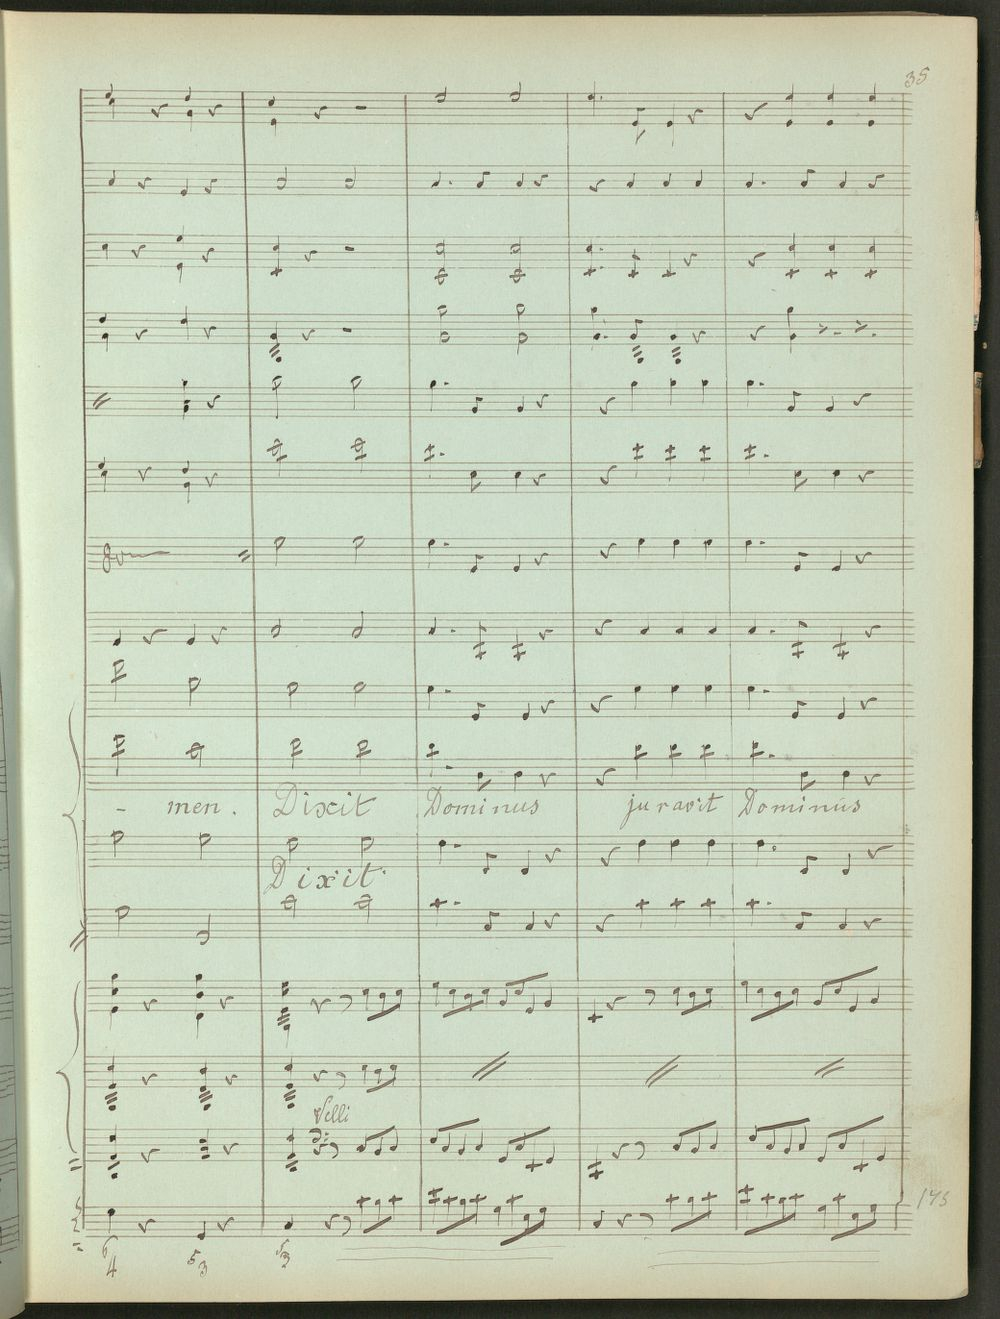 35
- men. Dixit Dominus juravit Dominus
Dixit
Velli
6 4 5 3 5 3